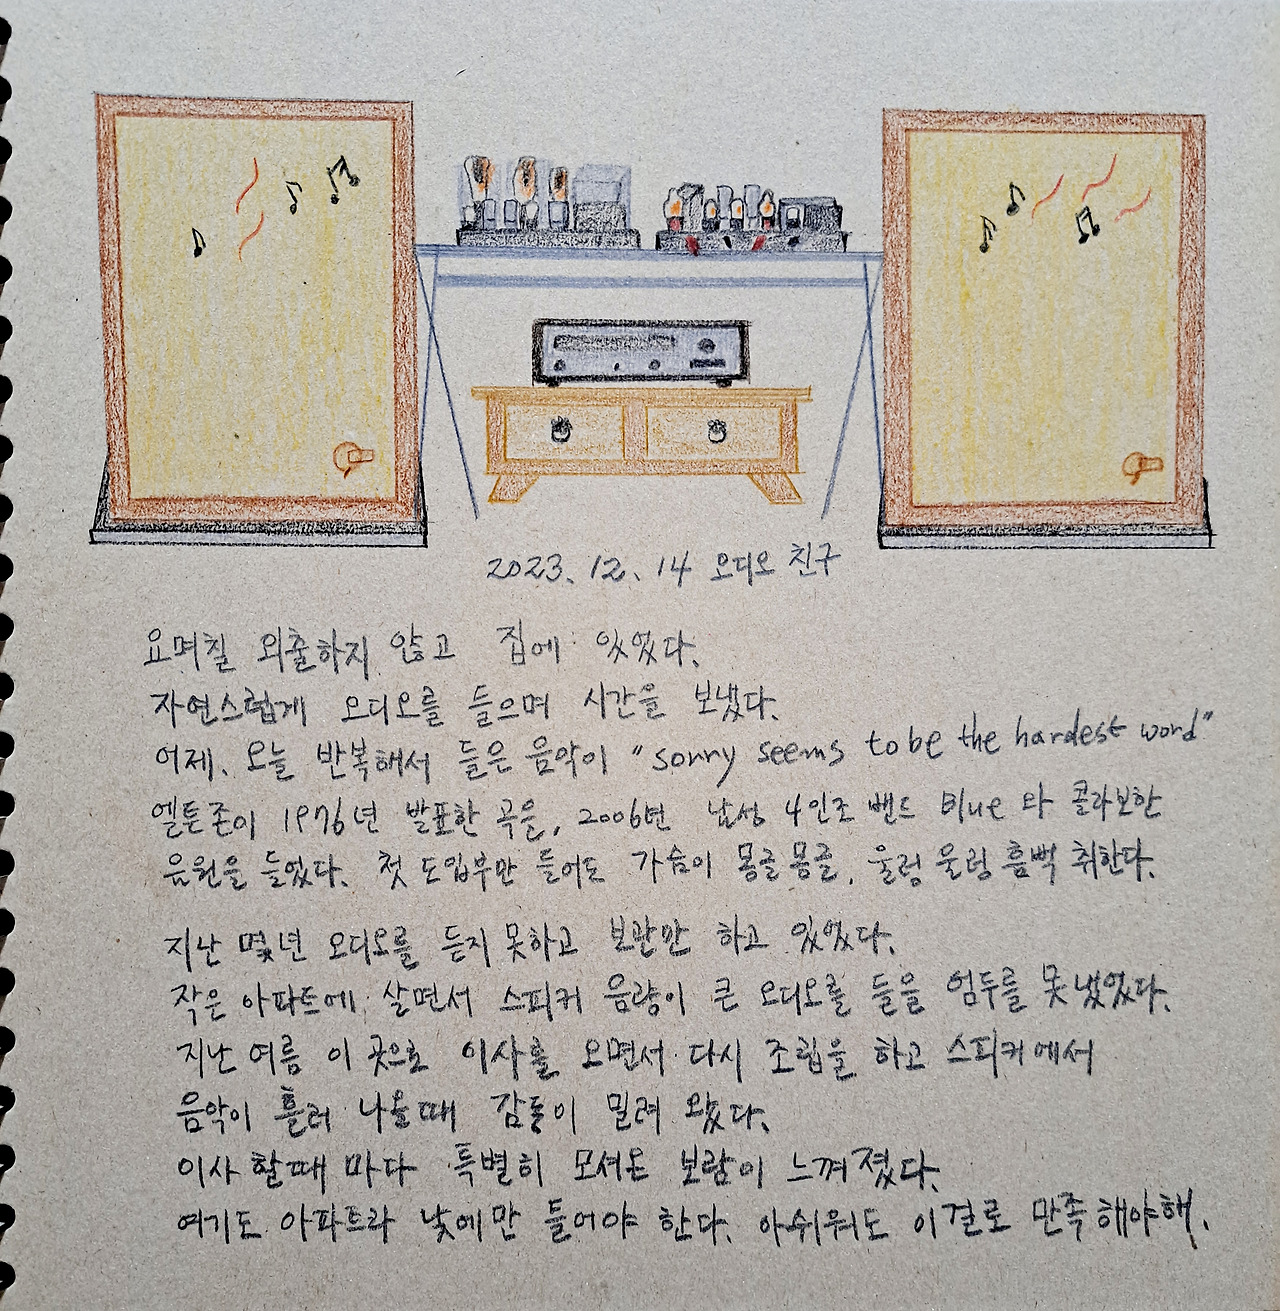 2023. 12. 14 오디오 친구
요며칠 외출하지 않고 집에 있었다.
자연스럽게 오디오를 들으며 시간을 보냈다.
어제. 오늘 반복해서 들은 음악이 "sorry seems to be the hardest word"
엘튼존이 1976년 발표한 곡을, 2006년 남성 4인조 밴드 Blue 와 콜라보한
음원을 들었다. 첫 도입부만 들어도 가슴이 몽글몽글, 울렁울렁 흠뻑 취한다.
지난 몇년 오디오를 듣지 못하고 보관만 하고 있었다.
작은 아파트에 살면서 스피커 음량이 큰 오디오를 들을 엄두를 못냈었다.
지난 여름 이 곳으로 이사를 오면서 다시 조립을 하고 스피커에서
음악이 흘러 나올때 감동이 밀려 왔다.
이사 할때 마다 특별히 모셔온 보람이 느껴졌다.
여기도 아파트라 낮에만 들어야 한다. 아쉬워도 이걸로 만족해야해.